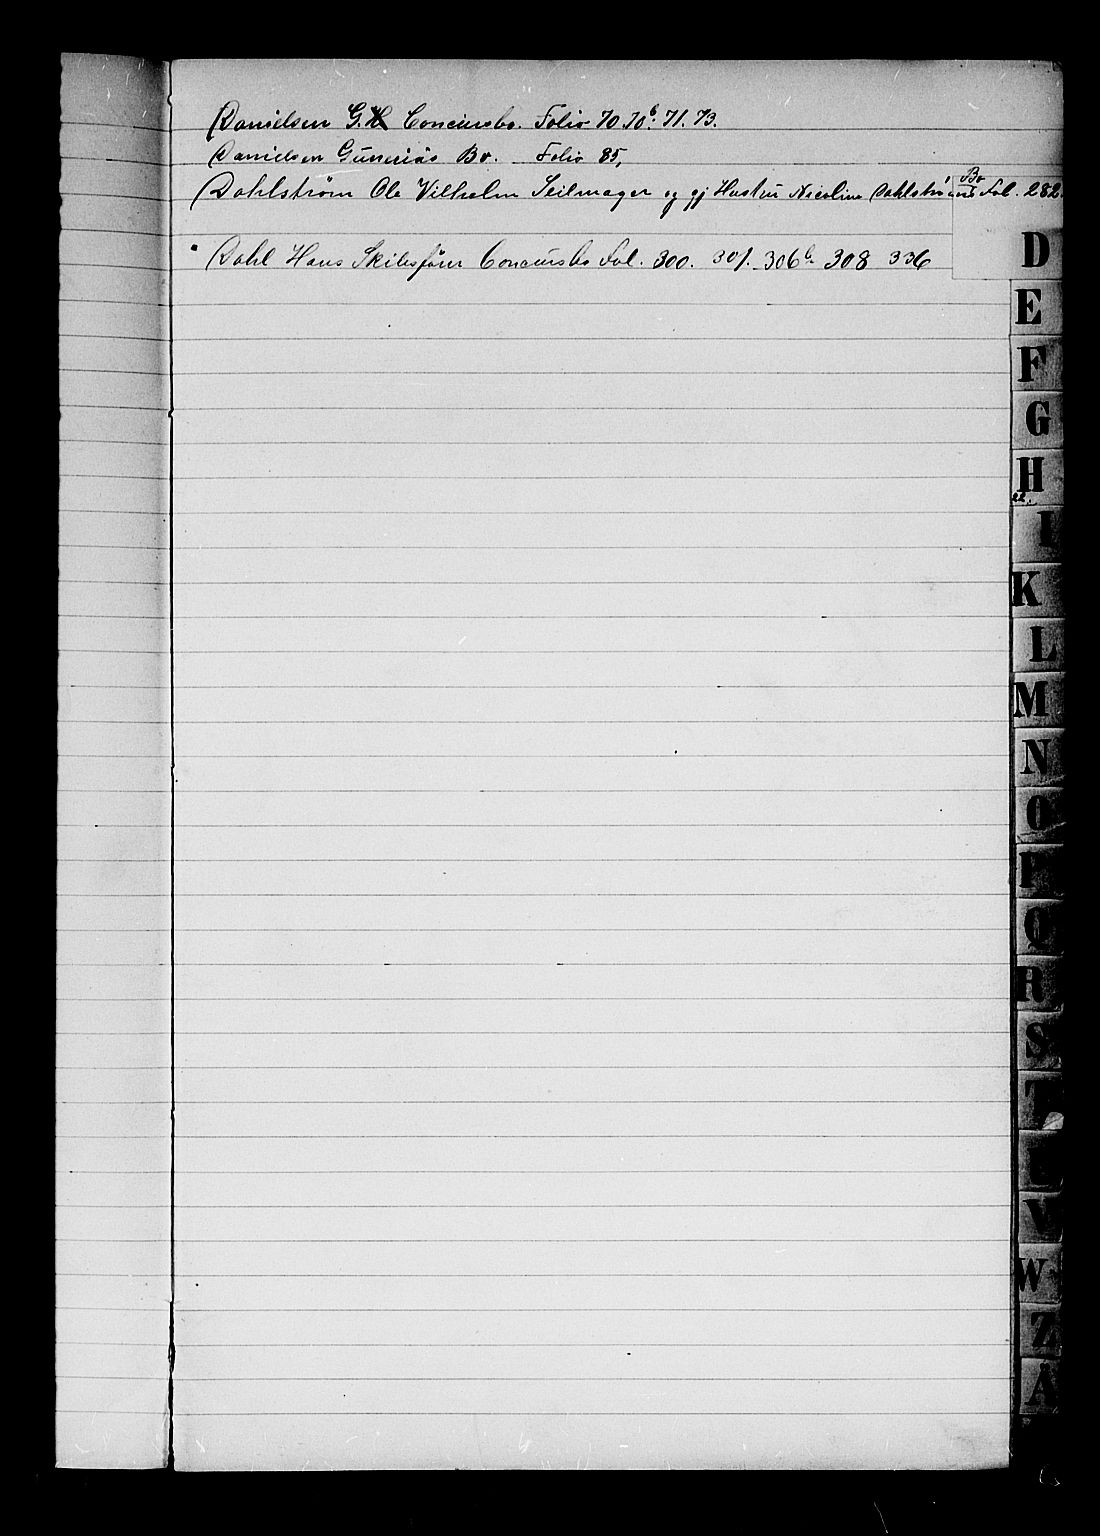 Danielsen G. H Concursbo. Folio 70. 70b. 71. 73.
Danielsen Gunerius Bo. Folio 85,
Dahlström Ole Vilhelm Seilmager og gj Hustru Nicoline Dahlströms Bo Fol. 282.
Dahl Hans Skibsfører Concursbo Fol. 300. 301. 306b 308 336
D
E
F
G
H
I
K
L
M
N
O
P
Q
R
S
T
U
V
W
Z
Å